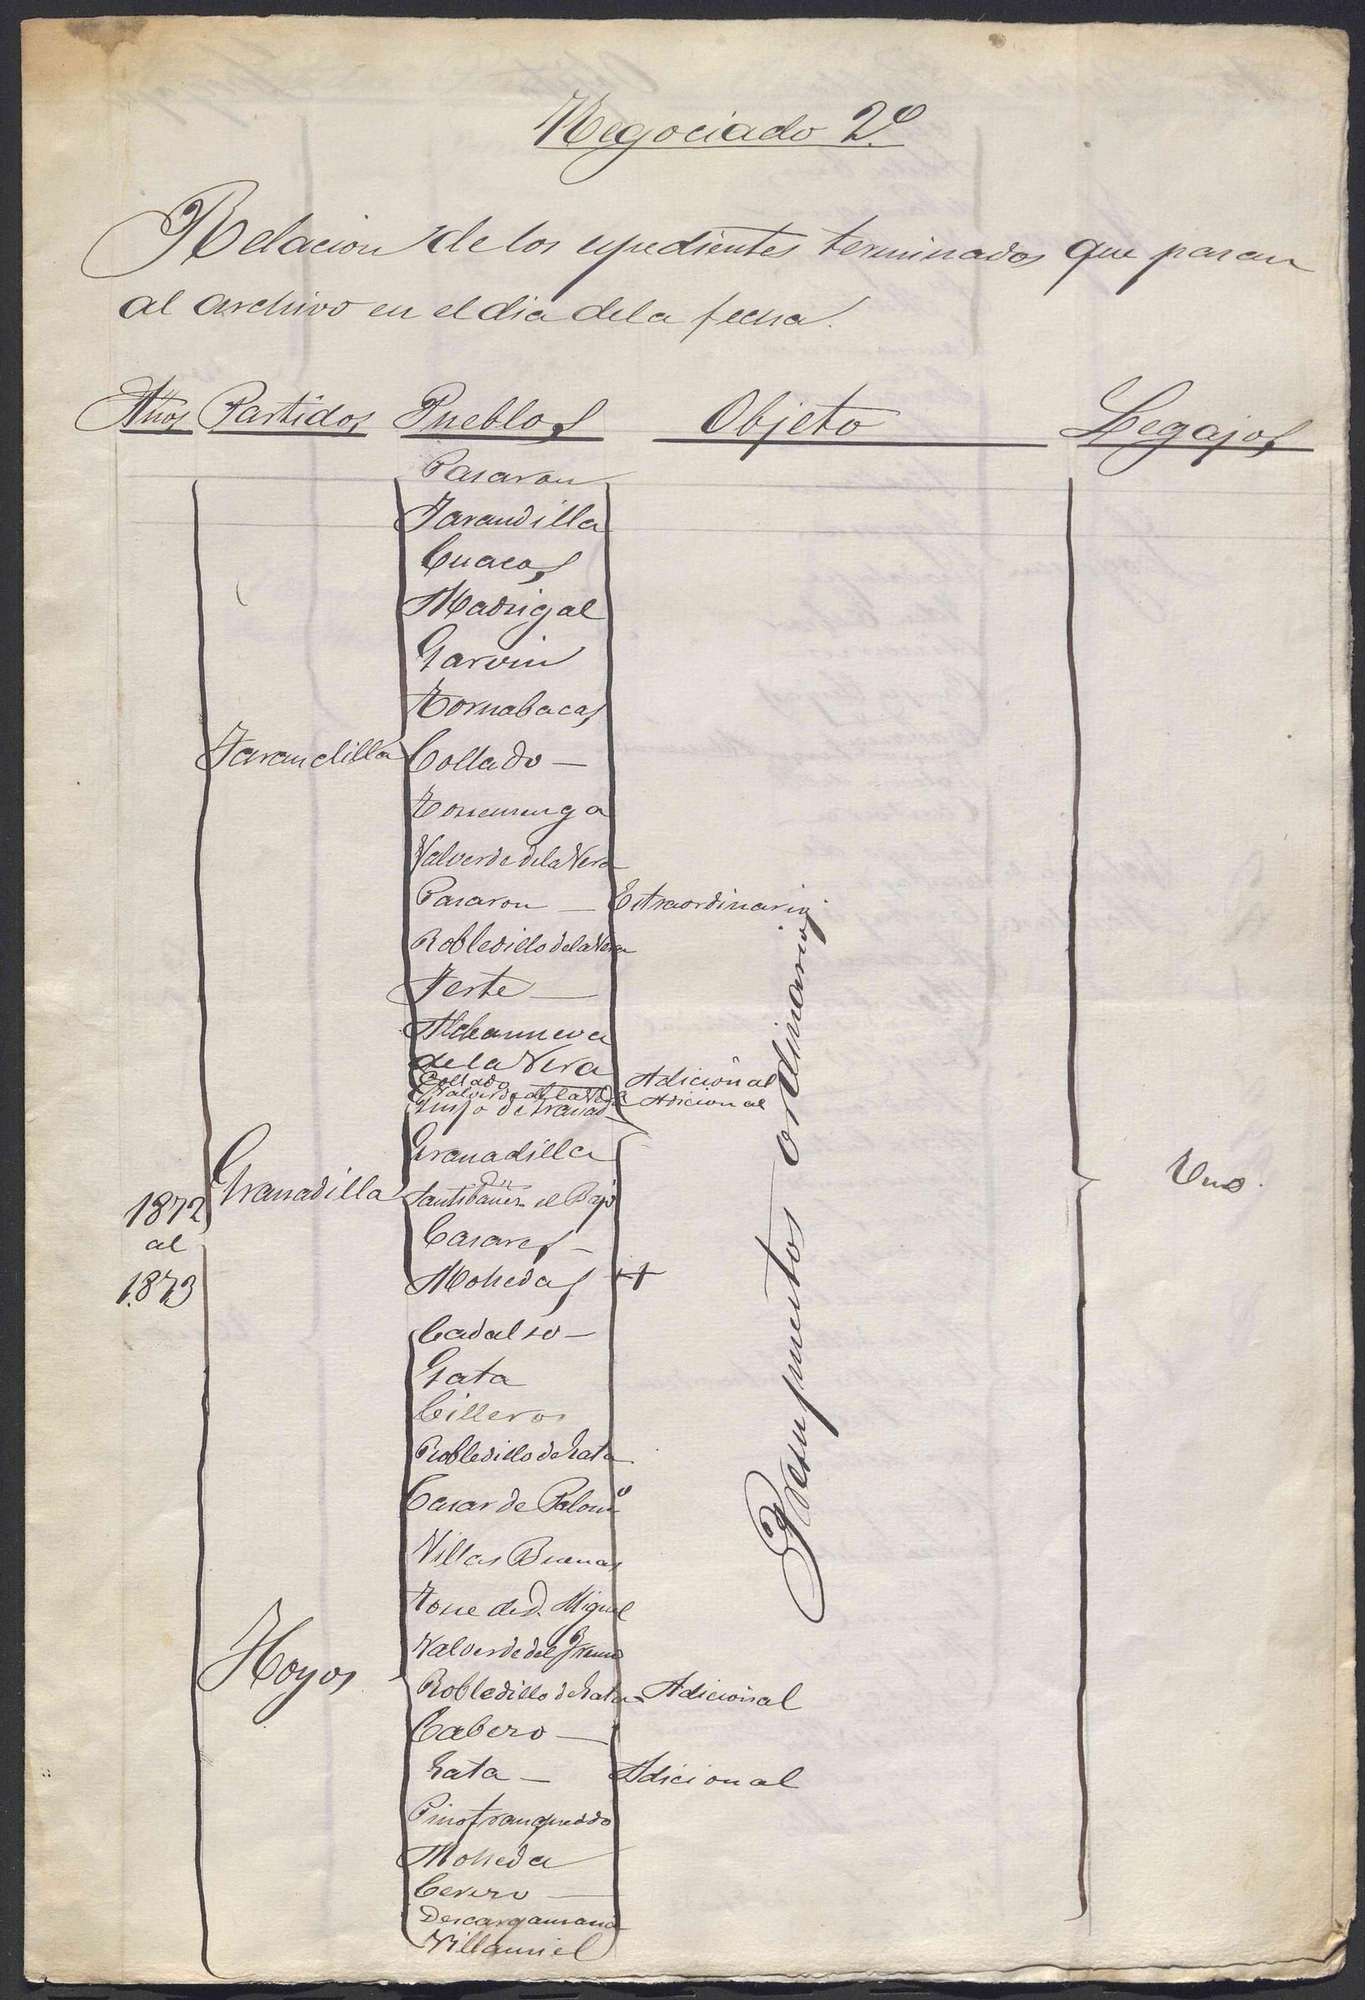 Negociado 2º
Relacion de los espedientes terminados que pasan
al archivo en el dia de la fecha.
Años Partidos Pueblos Objeto Legajos
Pasaron
Jarandilla
Cuacos
Madrigal
Garvin
Tornabacas
Jarandilla Collado —
Torremenga
Valverde de la Vera
Pasaron — Estraordinario
Robledillo de la Vera
Jerte —
Aldeanueva
de la Vera
Collado Adicional
Valverde de la Vera Adicional
Granadilla
Granadilla
Santibañez el Bajo
Casares —
Mohedas
1872
al
1873
Presupuestos ordinarios
Uno.
Cadalso —
Gata
Cilleros
Robledillo de Gata
Casar de Palomº
Villas Buenas
Torre de D. Miguel
Valverde del Fresno
Hoyos
Robledillo de Gata — Adicional
Cabero —
Gata — Adicional
Pinofranqueado
Moheda
Descargamaria
Villamiel